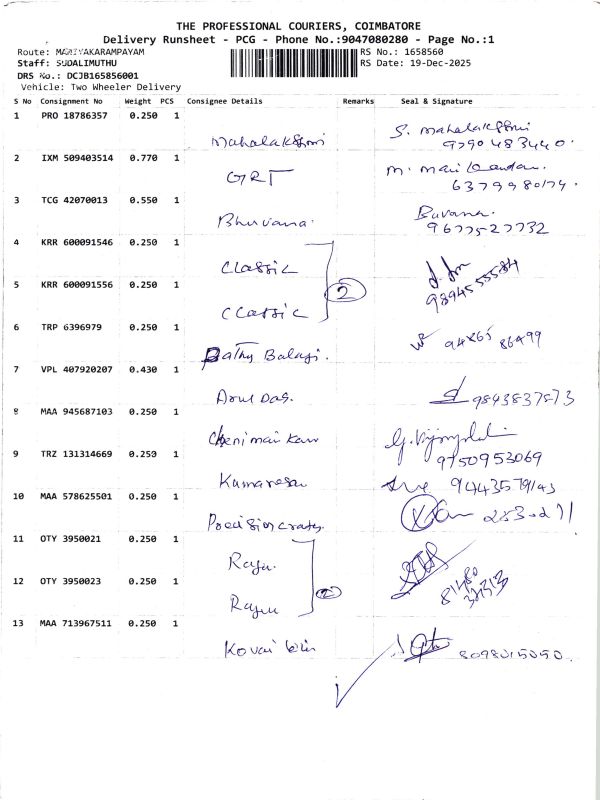 THE PROFESSIONAL COURIERS, COIMBATORE
Delivery Runsheet - PCG - Phone No.:9047080280 - Page No.:1
Route: MARIYAKARAMPAYAM RS No.: 1658560
Staff: SUDALIMUTHU RS Date: 19-Dec-2025
DRS No.: DCJB165856001
Vehicle: Two Wheeler Delivery
S No Consignment No Weight PCS Consignee Details Remarks Seal & Signature
1 PRO 18786357 0.250 1
Mahalakshmi S. Mahalakshmi
9790483440.
2 IXM 509403514 0.770 1
GRT M.
6379980174.
3 TCG 42070013 0.550 1
Bhuvana. Buvana.
9677527732
4 KRR 600091546 0.250 1
Classic
2
9894555584
5 KRR 600091556 0.250 1
Classic
6 TRP 6396979 0.250 1
Balaji. 94865 86499
7 VPL 407920207 0.430 1
Arul Das. 9843837873
8 MAA 945687103 0.250 1
9750953069
9 TRZ 131314669 0.250 1
Kumaresan
10 MAA 578625501 0.250 1
11 OTY 3950021 0.250 1
Raju.
2
12 OTY 3950023 0.250 1
Raju
13 MAA 713967511 0.250 1
Kovai
8098015050.